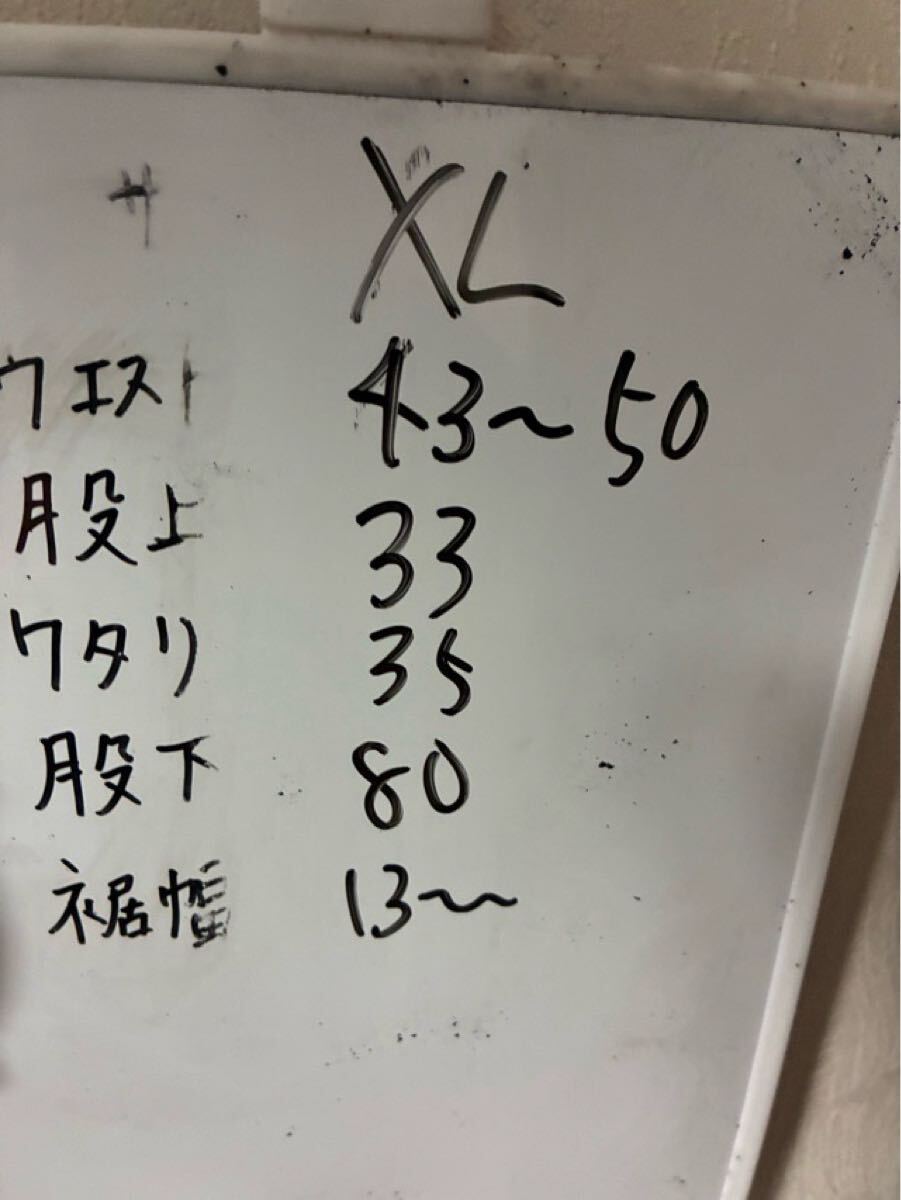 サ XL
ウエスト 43～50
股上 33
ワタリ 35
股下 80
裾幅 13～